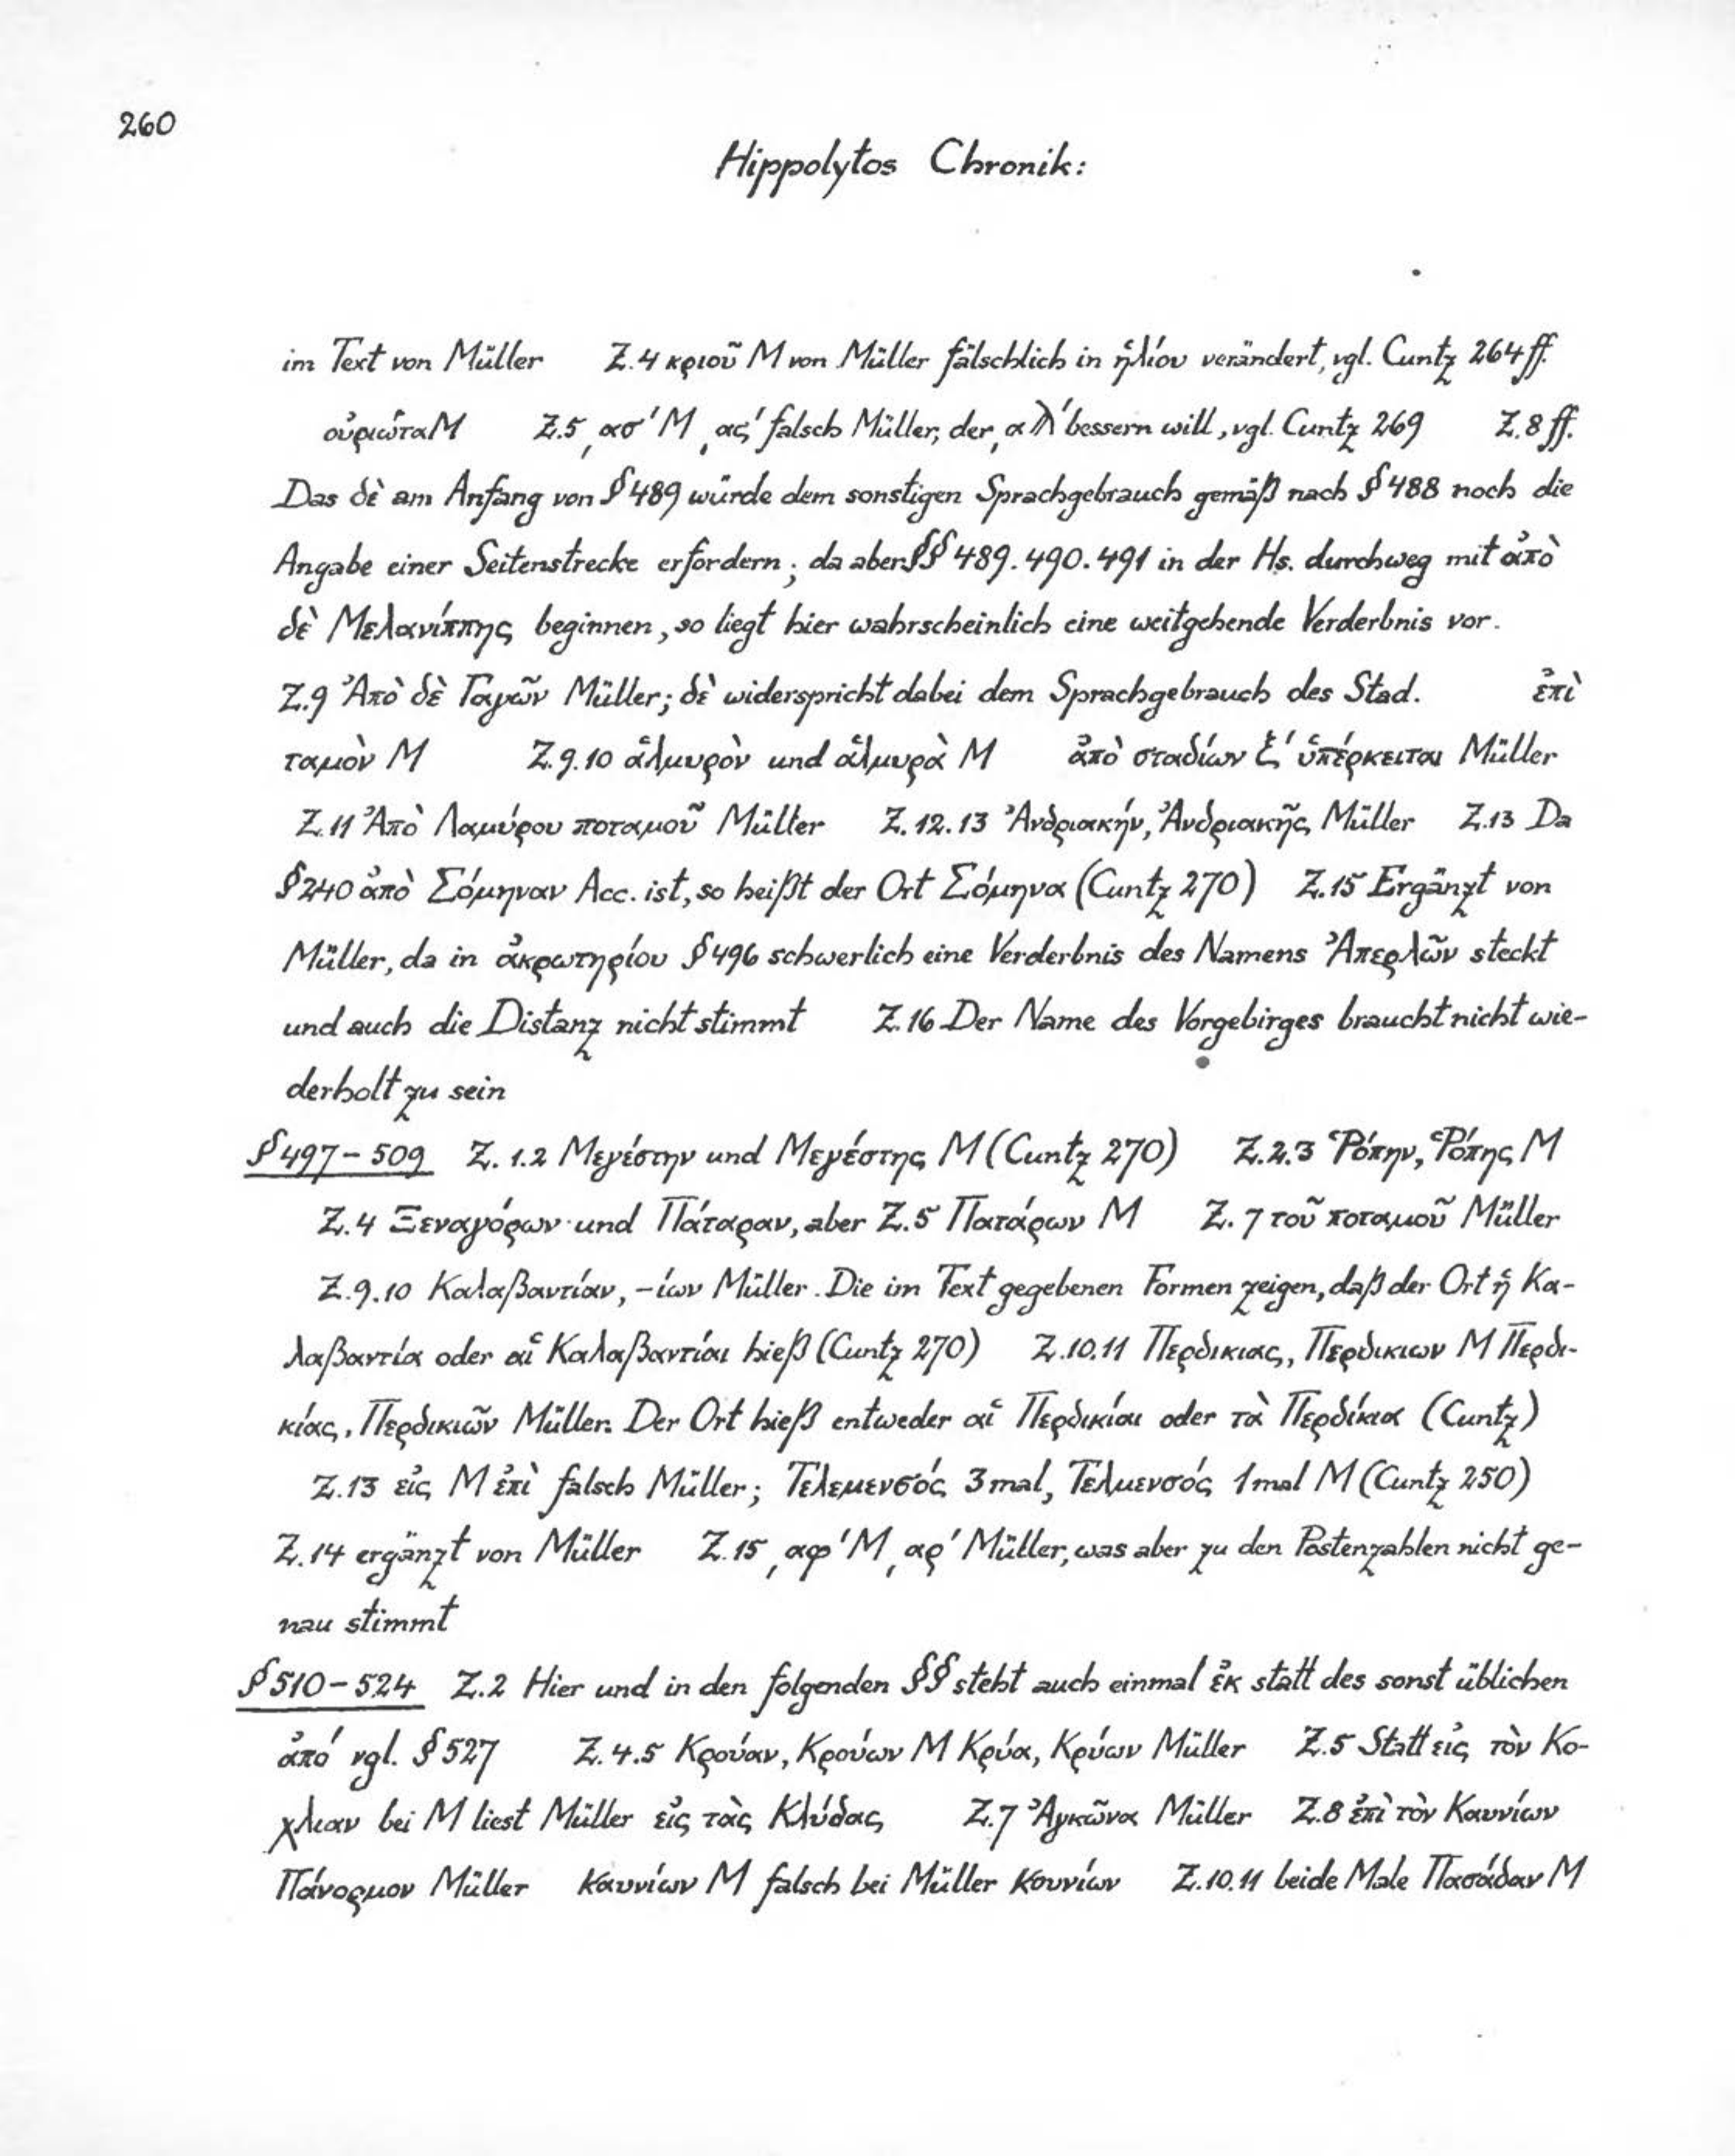 260
Hippolytos Chronik:
im Text von Müller Z.4 κριοῦ M von Müller fälschlich in ἡλίου verändert, vgl. Cuntz 264 ff.
οὐριῶτα M Z.5 ͵ασʹ M ͵αϛʹ falsch Müller, der ͵αλʹ bessern will, vgl. Cuntz 269 Z.8 ff.
Das δὲ am Anfang von § 489 würde dem sonstigen Sprachgebrauch gemäß nach § 488 noch die
Angabe einer Seitenstrecke erfordern; da aber §§ 489.490.491 in der Hs. durchweg mit ἀπὸ
δὲ Μελανίππης beginnen, so liegt hier wahrscheinlich eine weitgehende Verderbnis vor.
Z.9 Ἀπὸ δὲ Γαγῶν Müller; δὲ widerspricht dabei dem Sprachgebrauch des Stad. ἐπὶ
ταμὸν M Z.9.10 ἁλμυρὸν und ἁλμυρὰ M ἀπὸ σταδίων ξʹ ὑπέρκειται Müller
Z.11 Ἀπὸ Λαμύρου ποταμοῦ Müller Z.12.13 Ἀνδριακήν, Ἀνδριακῆς Müller Z.13 Da
§ 240 ἀπὸ Σόμηναν Acc. ist, so heißt der Ort Σόμηνα (Cuntz 270) Z.15 Ergänzt von
Müller, da in ἀκρωτηρίου § 496 schwerlich eine Verderbnis des Namens Ἀπερλῶν steckt
und auch die Distanz nicht stimmt Z.16 Der Name des Vorgebirges braucht nicht wie-
derholt zu sein
§ 497-509 Z.1.2 Μεγέστην und Μεγέστης M (Cuntz 270) Z.2.3 Ῥόπην, Ῥόπης M
Z.4 Ξεναγόρων und Πάταραν, aber Z.5 Πατάρων M Z.7 τοῦ ποταμοῦ Müller
Z.9.10 Καλαβαντίαν, -ίων Müller. Die im Text gegebenen Formen zeigen, daß der Ort ἡ Κα-
λαβαντία oder αἱ Καλαβαντίαι hieß (Cuntz 270) Z.10.11 Περδικιας, Περδικιων M Περδι-
κίας, Περδικιῶν Müller. Der Ort hieß entweder αἱ Περδικίαι oder τὰ Περδίκια (Cuntz)
Z.13 εἰς M ἐπὶ falsch Müller; Τελεμενσός 3mal, Τελμενσός 1mal M (Cuntz 250)
Z.14 ergänzt von Müller Z.15 ͵αφʹ M ͵αρʹ Müller, was aber zu den Postenzahlen nicht ge-
nau stimmt
§ 510-524 Z.2 Hier und in den folgenden §§ steht auch einmal ἐκ statt des sonst üblichen
ἀπό vgl. § 527 Z.4.5 Κρούαν, Κρούων M Κρύα, Κρύων Müller Z.5 Statt εἰς τὸν Κο-
χλιαν bei M liest Müller εἰς τὰς Κλύδας Z.7 Ἀγκῶνα Müller Z.8 ἐπὶ τὸν Καυνίων
Πάνορμον Müller Καυνίων M falsch bei Müller Κουνίων Z.10.11 beide Male Πασάδαν M